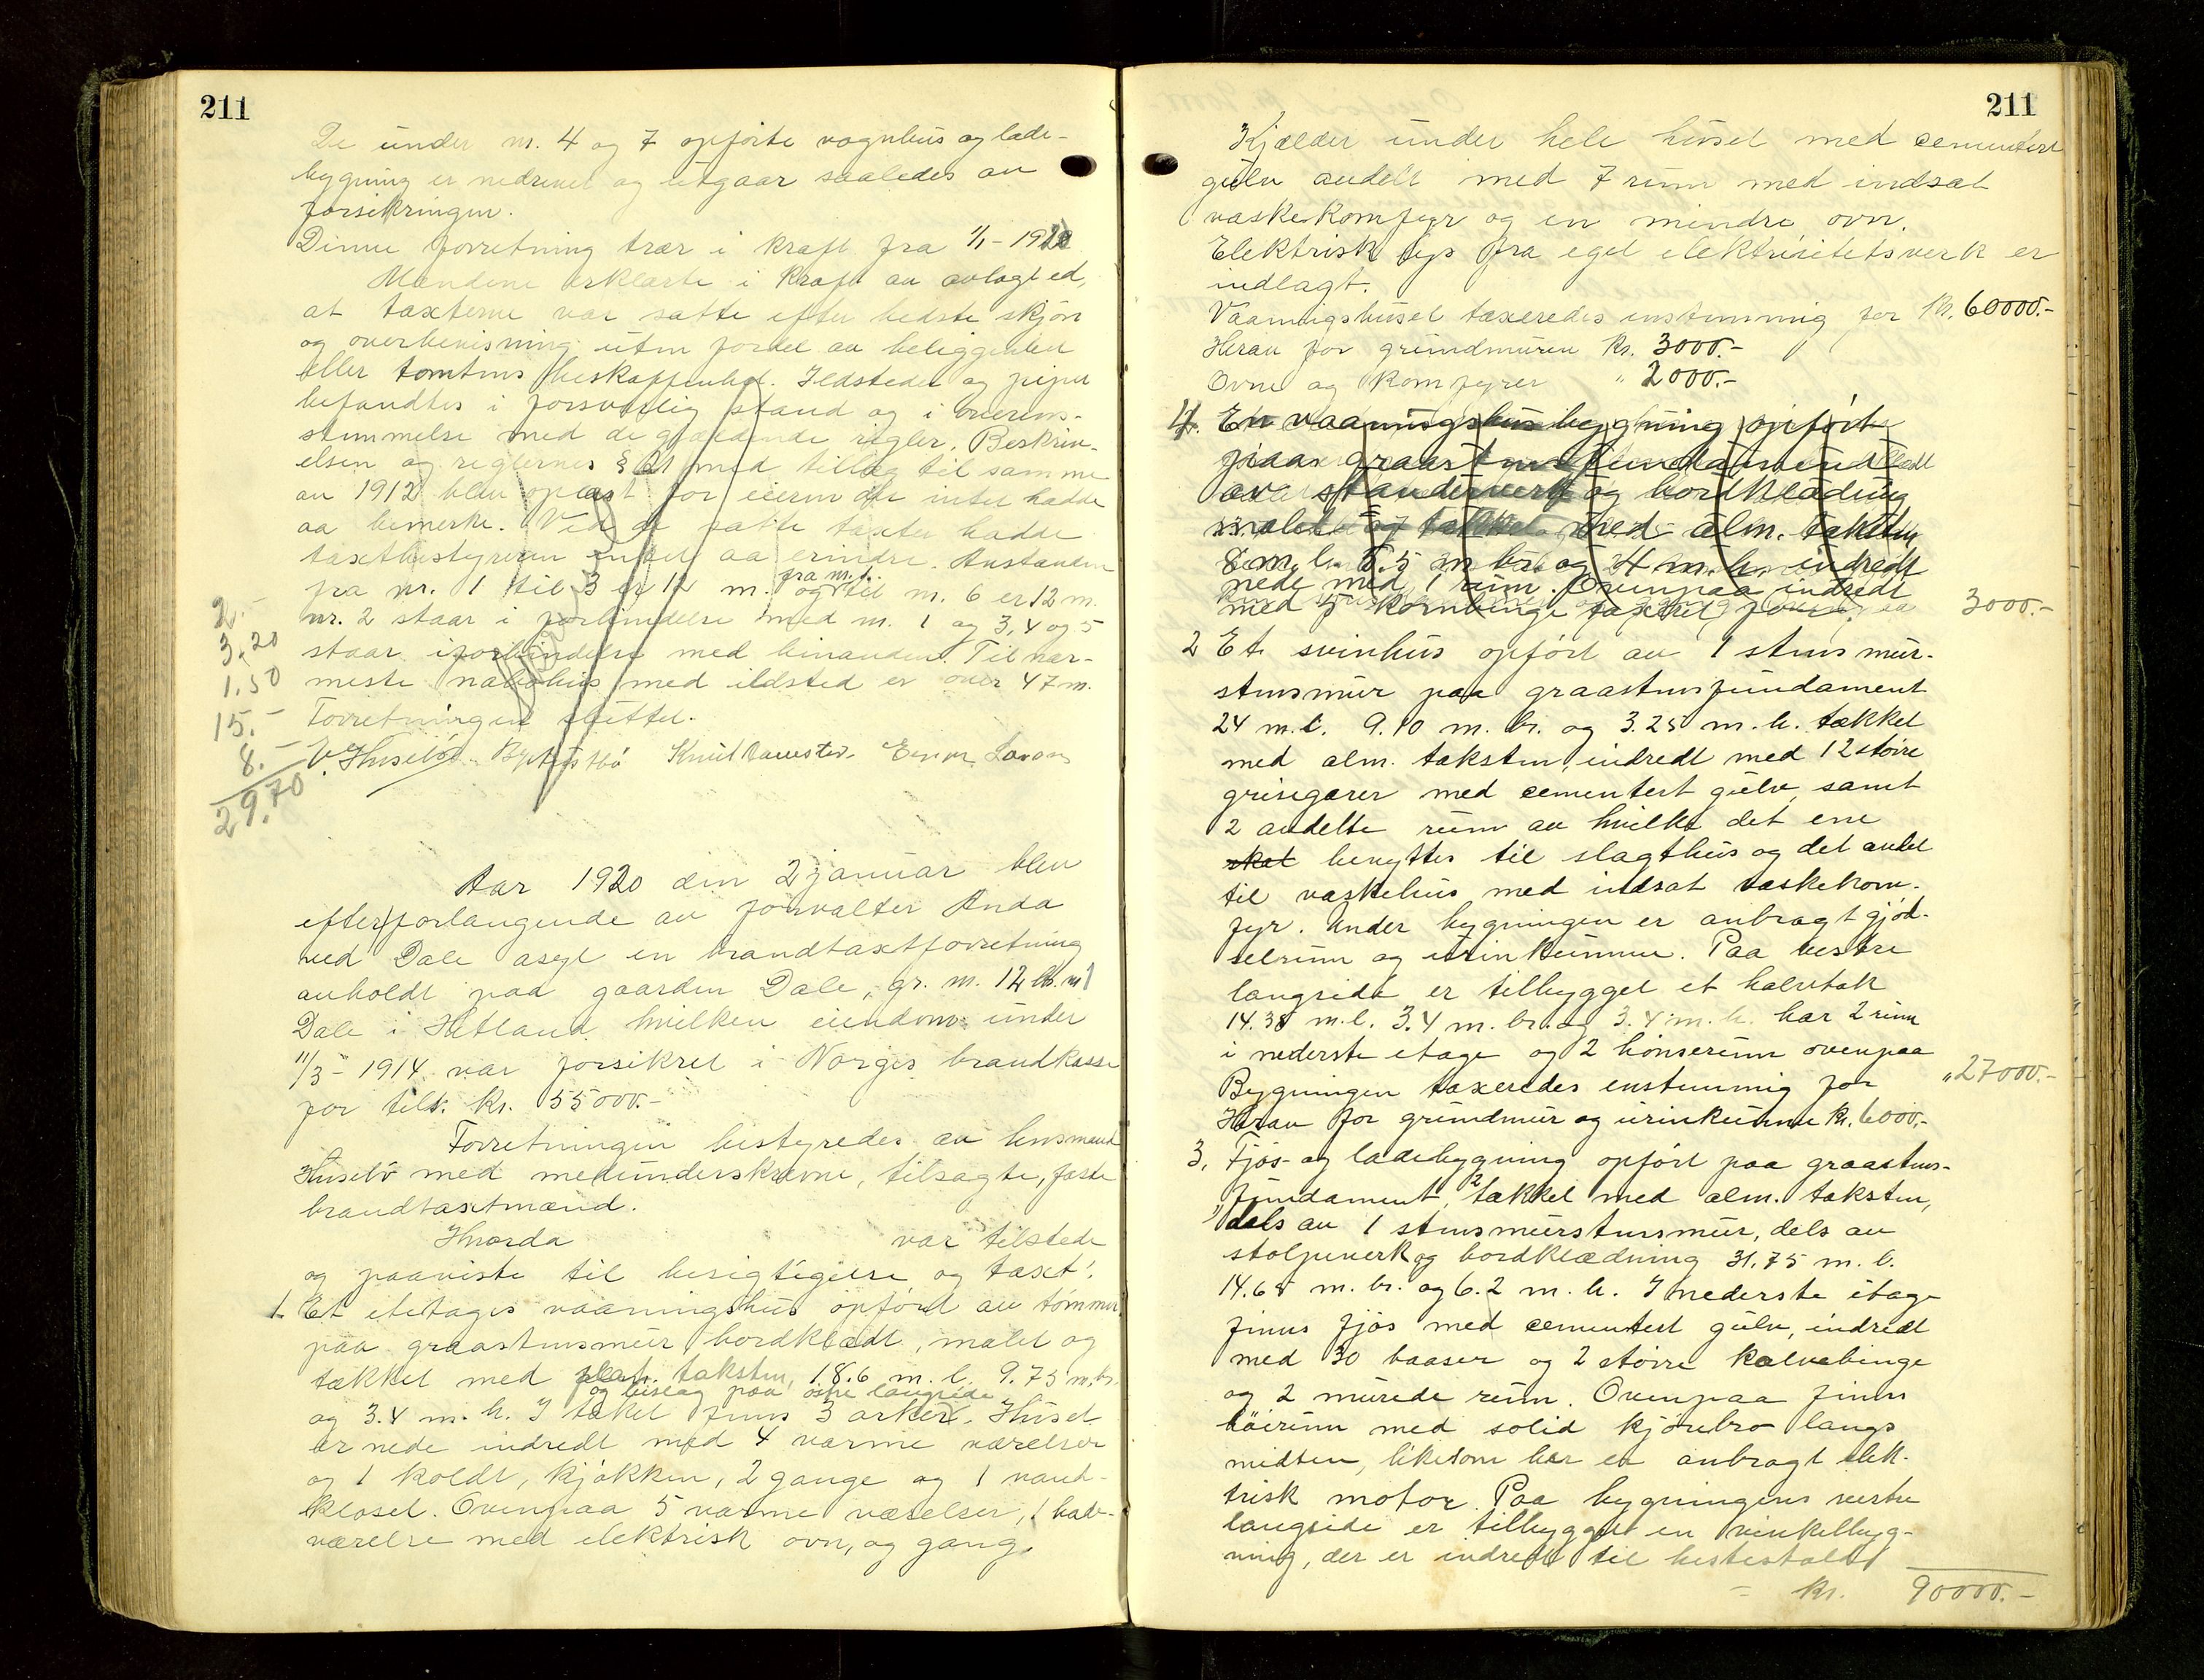 211
De under nr. 4 og 7 opførte vognhus og lade-
bygning er nedrevet og utgaar saaledes av
forsikringen.
Denne forretning trær i kraft fra 1/1 - 1920
Mændene erklærte i kraft av avlagt ed,
at taxterne var satte efter bedste skjøn
og overbevisning uten fordel av beliggenhet
eller tomtens beskaffenhet. Ildsteder og piper
befandtes i forsvarlig stand og i overens-
stemmelse med de gjældende regler. Beskriv-
elsen og reglernes § 21 med tillæg til samme
av 1912 blev oplæst for eieren der intet hadde
aa bemerke. Ved de satte taxter hadde
taxtbestyreren intet aa erindre. Avstanden
fra nr. 1 til 3 er 12 m. og fra nr. 1 til nr. 6 er 12 m.
nr. 2 staar i forbindelse med nr. 1 og 3, 4 og 5
staar i forbindelse med hinanden. Til nær-
meste nabohus med ildsted er over 47 m.
Forretningen sluttet.
V. Husebø Knut Daues Larsen
2.-
3.20
1.50
15.-
8.-
29.70
Aar 1920 den 2 januar blev
efter forlangende av forvalter Anda
ved Dale asyl en brandtaxtforretning
avholdt paa gaarden Dale, gr. nr. 12 br. nr 1
Dale i Hetland hvilken eiendom under
11/3 - 1914 var forsikret i Norges brandkasse
for tils. kr. 55000.-
Forretningen bestyredes av lensmand
Husebø med medunderskrevne, tilsagte, faste
brandtaxtmænd.
Hvorda var tilstede
og paaviste til besigtigelse og taxt:
1. Et etetages vaaningshus opført av tømmer
paa graastensmur, bordklædt, malet og
tækket med taksten, 18.6 m. l. 9.75 m. br.
og bislag paa østre langside
og 3.4 m. h. I taket fins 3 arker. Huset
er nede indredt med 4 varme værelser
og 1 koldt, kjøkken, 2 gange og 1 vand-
kloset. Ovenpaa 5 varme værelser, 1 bade-
værelse med elektrisk ovn, og gang.
211
Kjælder under hele huset med cementert
gulv avdelt med 7 rum med indsat
vaskekomfyr og en mindre ovn.
Elektrisk lys fra eget elektrisitetsverk er
indlagt.
Vaaningshuset taxeredes enstemmig for Kr. 60000.-
Herav for grundmuren Kr. 3000.-
Ovne og komfyrer " 2000.-
4. En vaaningshusbygning opført
paa graastensfundament
av standerverk og bordklædning
malet og tækket med alm. taksten
8 m. l. 5.5 m br. og 4 m. h. indredt
nede med 1 rum. Ovenpaa indredt
med 5 kornbinge taxeret for 3000.-
2 Et svinhus opført av 1 stens mur-
stensmur paa graastensfundament
24 m. l. 9.10 m. br. og 3.25 m. h. tækket
med alm. taksten, indredt med 12 større
grisegarer med cementert gulv, samt
2 avdelte rum av hvilke det ene
skal benyttes til slagthus og det andet
til vaskehus med indsat vaskekom-
fyr. Under bygningen er anbragt gjød-
selrum og urinkumme. Paa vestre
langside er tilbygget et halvtak
14.38 m. l. 3.4 m. br. og 3.4 m. h. har 2 rum
i nederste etage og 2 hønserum ovenpaa
Bygningen taxeredes enstemmig for " 27000.-
Herav for grundmur og urinkumme kr. 6000.-
3. Fjøs- og ladebygning opført paa graastens-
fundament, tækket med alm. taksten,
dels av 1 stensmurstensmur, dels av
stolpeverk og bordklædning 31.75 m. l.
14.68 m. br. og 6.2 m. h. I nederste etage
finns fjøs med cementert gulv, indredt
med 30 baaser og 2 større kalvebinge
og 2 murede rum. Ovenpaa finns
høirum med solid kjørebro langs
midten, likesom her er anbragt elek-
trisk motor. Paa bygningens vestre
langside er tilbygget en vinkelbyg-
ning, der er indredt til hestestald
Kr. 90000.-